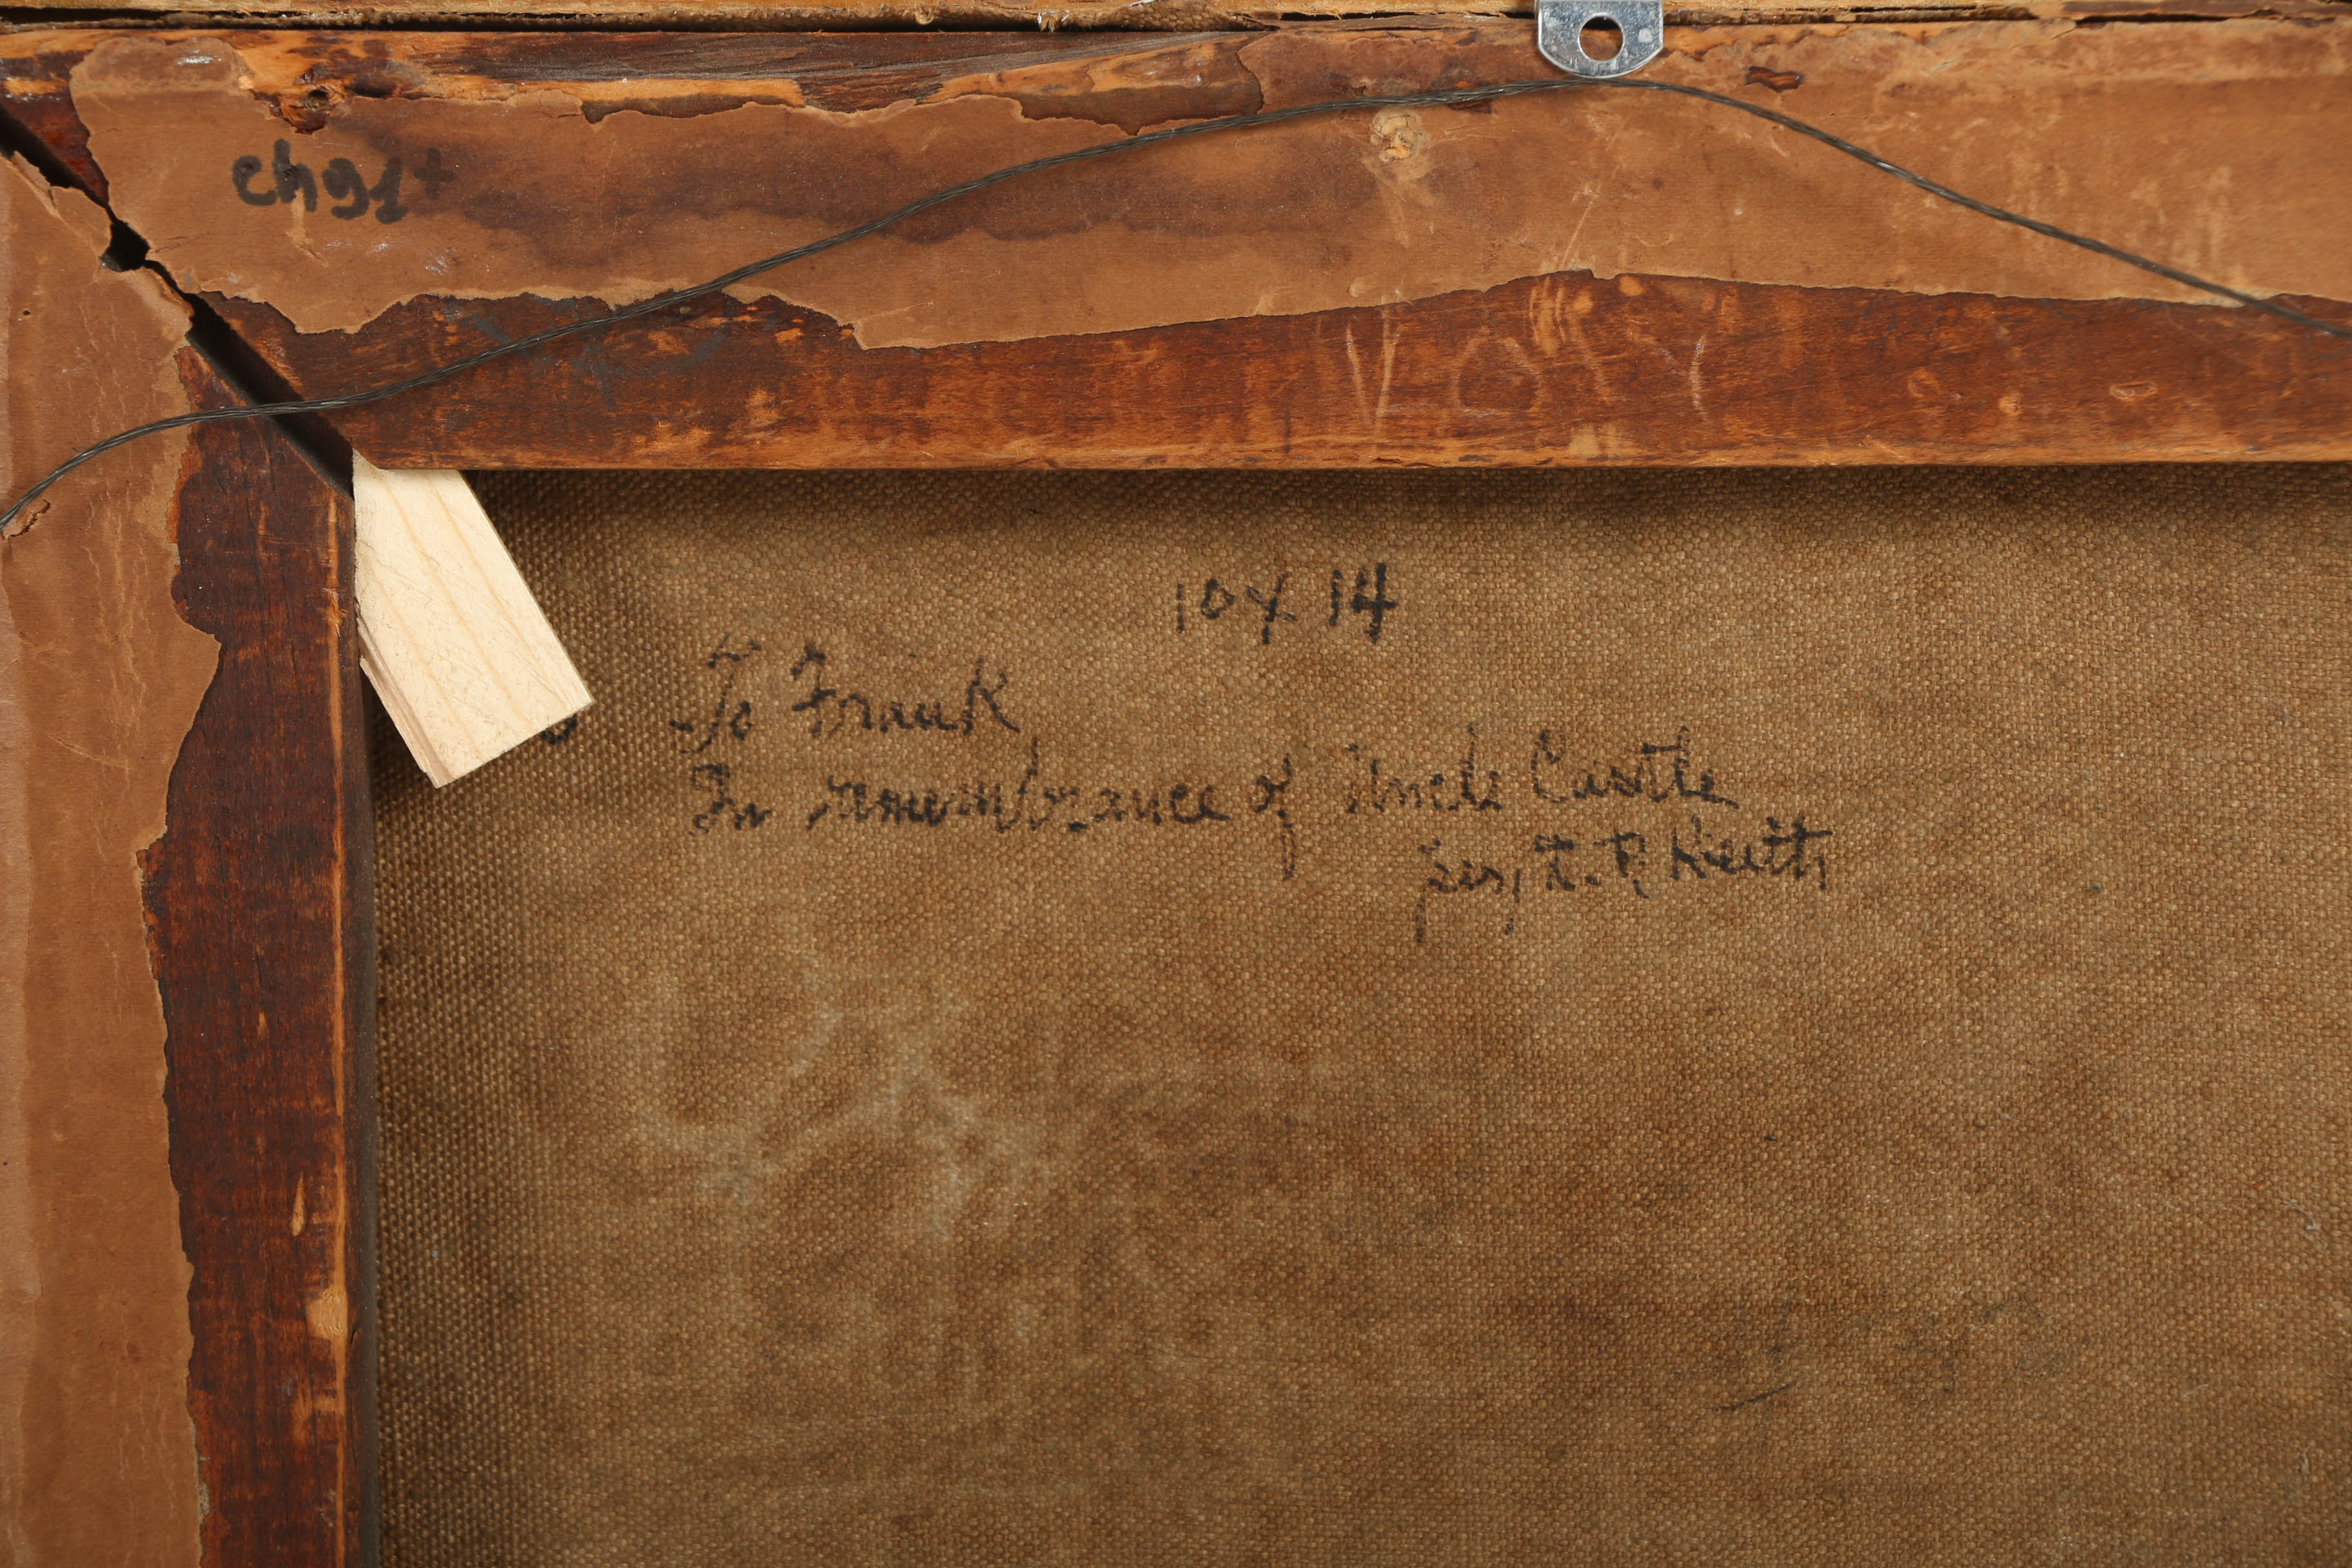 ch91+
10 x 14
To Frank
In remembrance of Uncle Castle
Keith